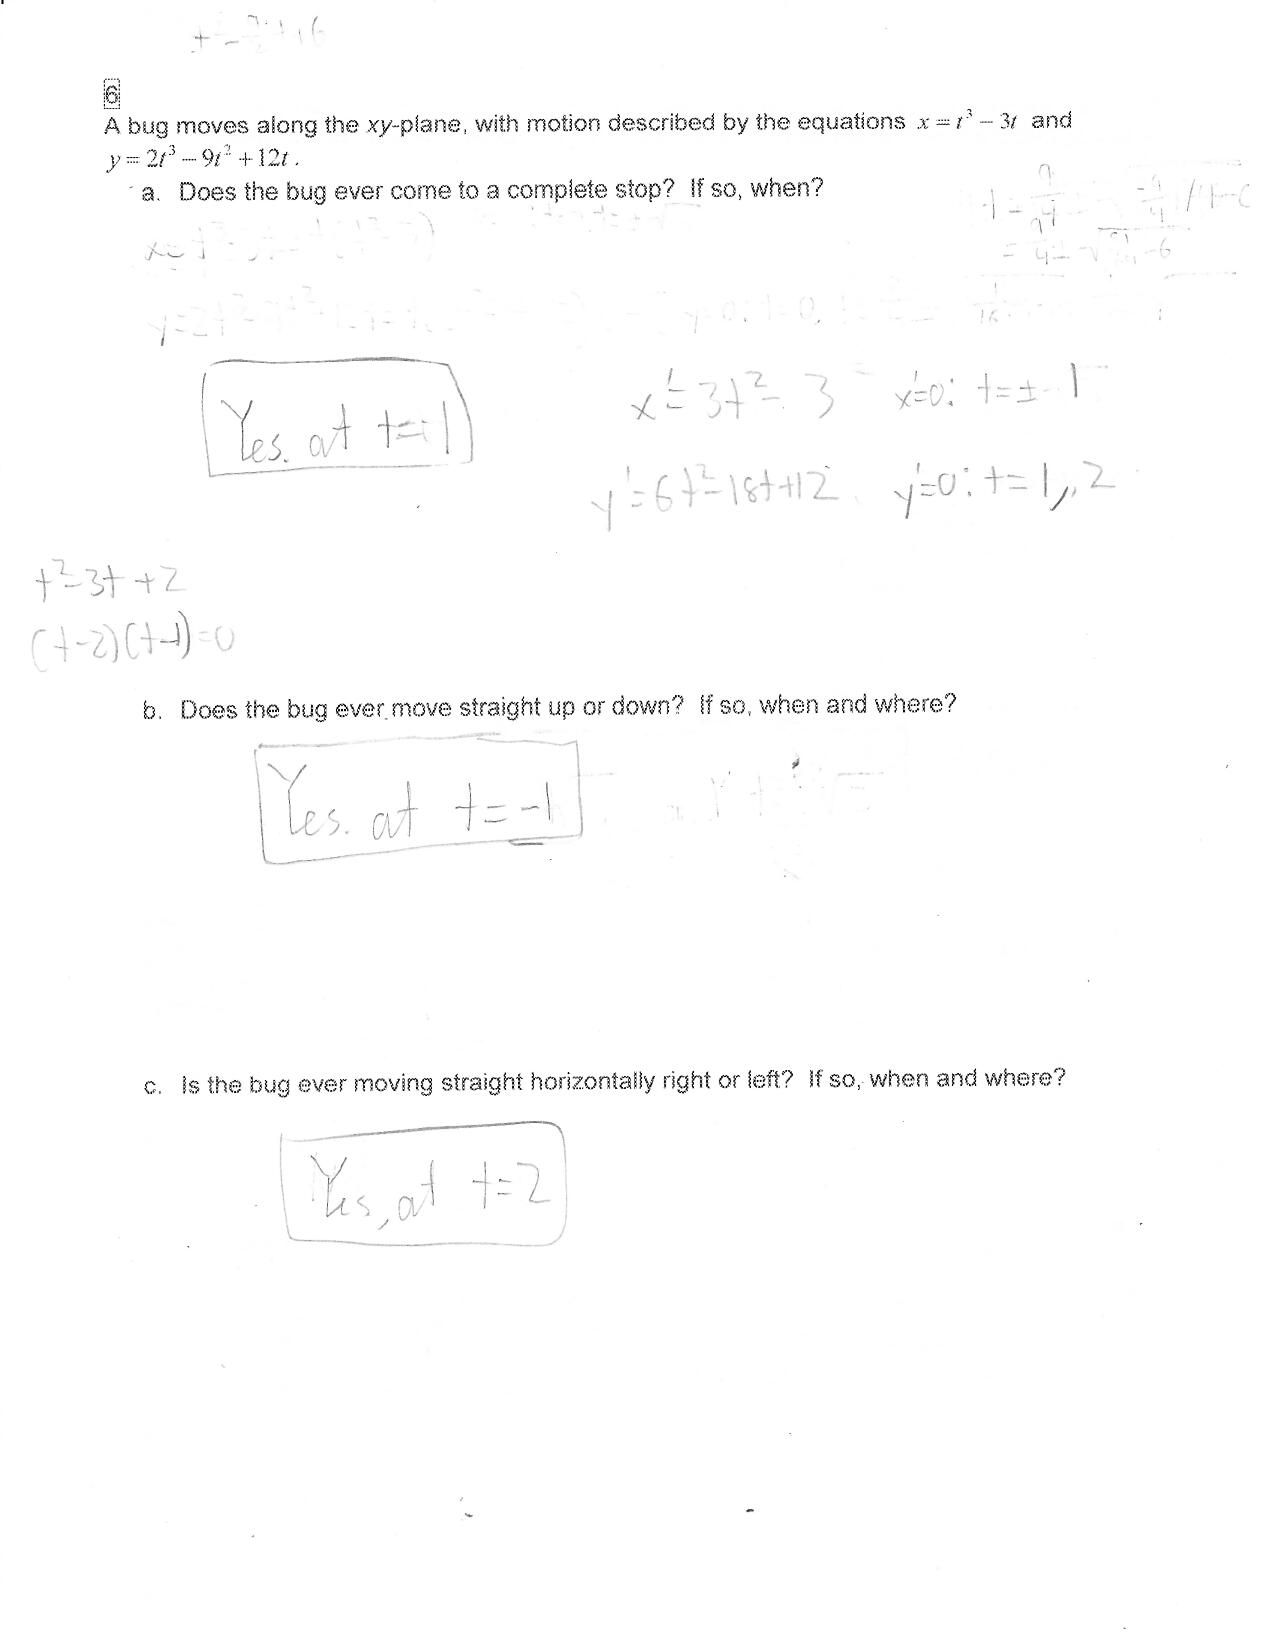 6
A bug moves along the xy-plane, with motion described by the equations x = t³ – 3t and
y = 2t³ – 9t² + 12t.
a. Does the bug ever come to a complete stop? If so, when?
Yes. at t=1
x'=3t²-3 x'=0: t=±1
y'=6t²-18t+12 y'=0: t=1,2
t²-3t+2
(t-2)(t-1)=0
b. Does the bug ever move straight up or down? If so, when and where?
Yes. at t=-1
c. Is the bug ever moving straight horizontally right or left? If so, when and where?
Yes, at t=2